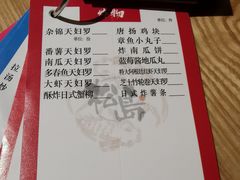 炸物
单位：份
杂锦天妇罗
单位：份
番薯天妇罗
南瓜天妇罗
多春鱼天妇罗
大虾天妇罗
酥炸日式蟹柳
唐扬鸡块
章鱼小丸子
炸南瓜饼
蓝莓酱地瓜丸
芝士竹轮卷天妇罗
日式炸薯条
松岛
拉
汤
炒